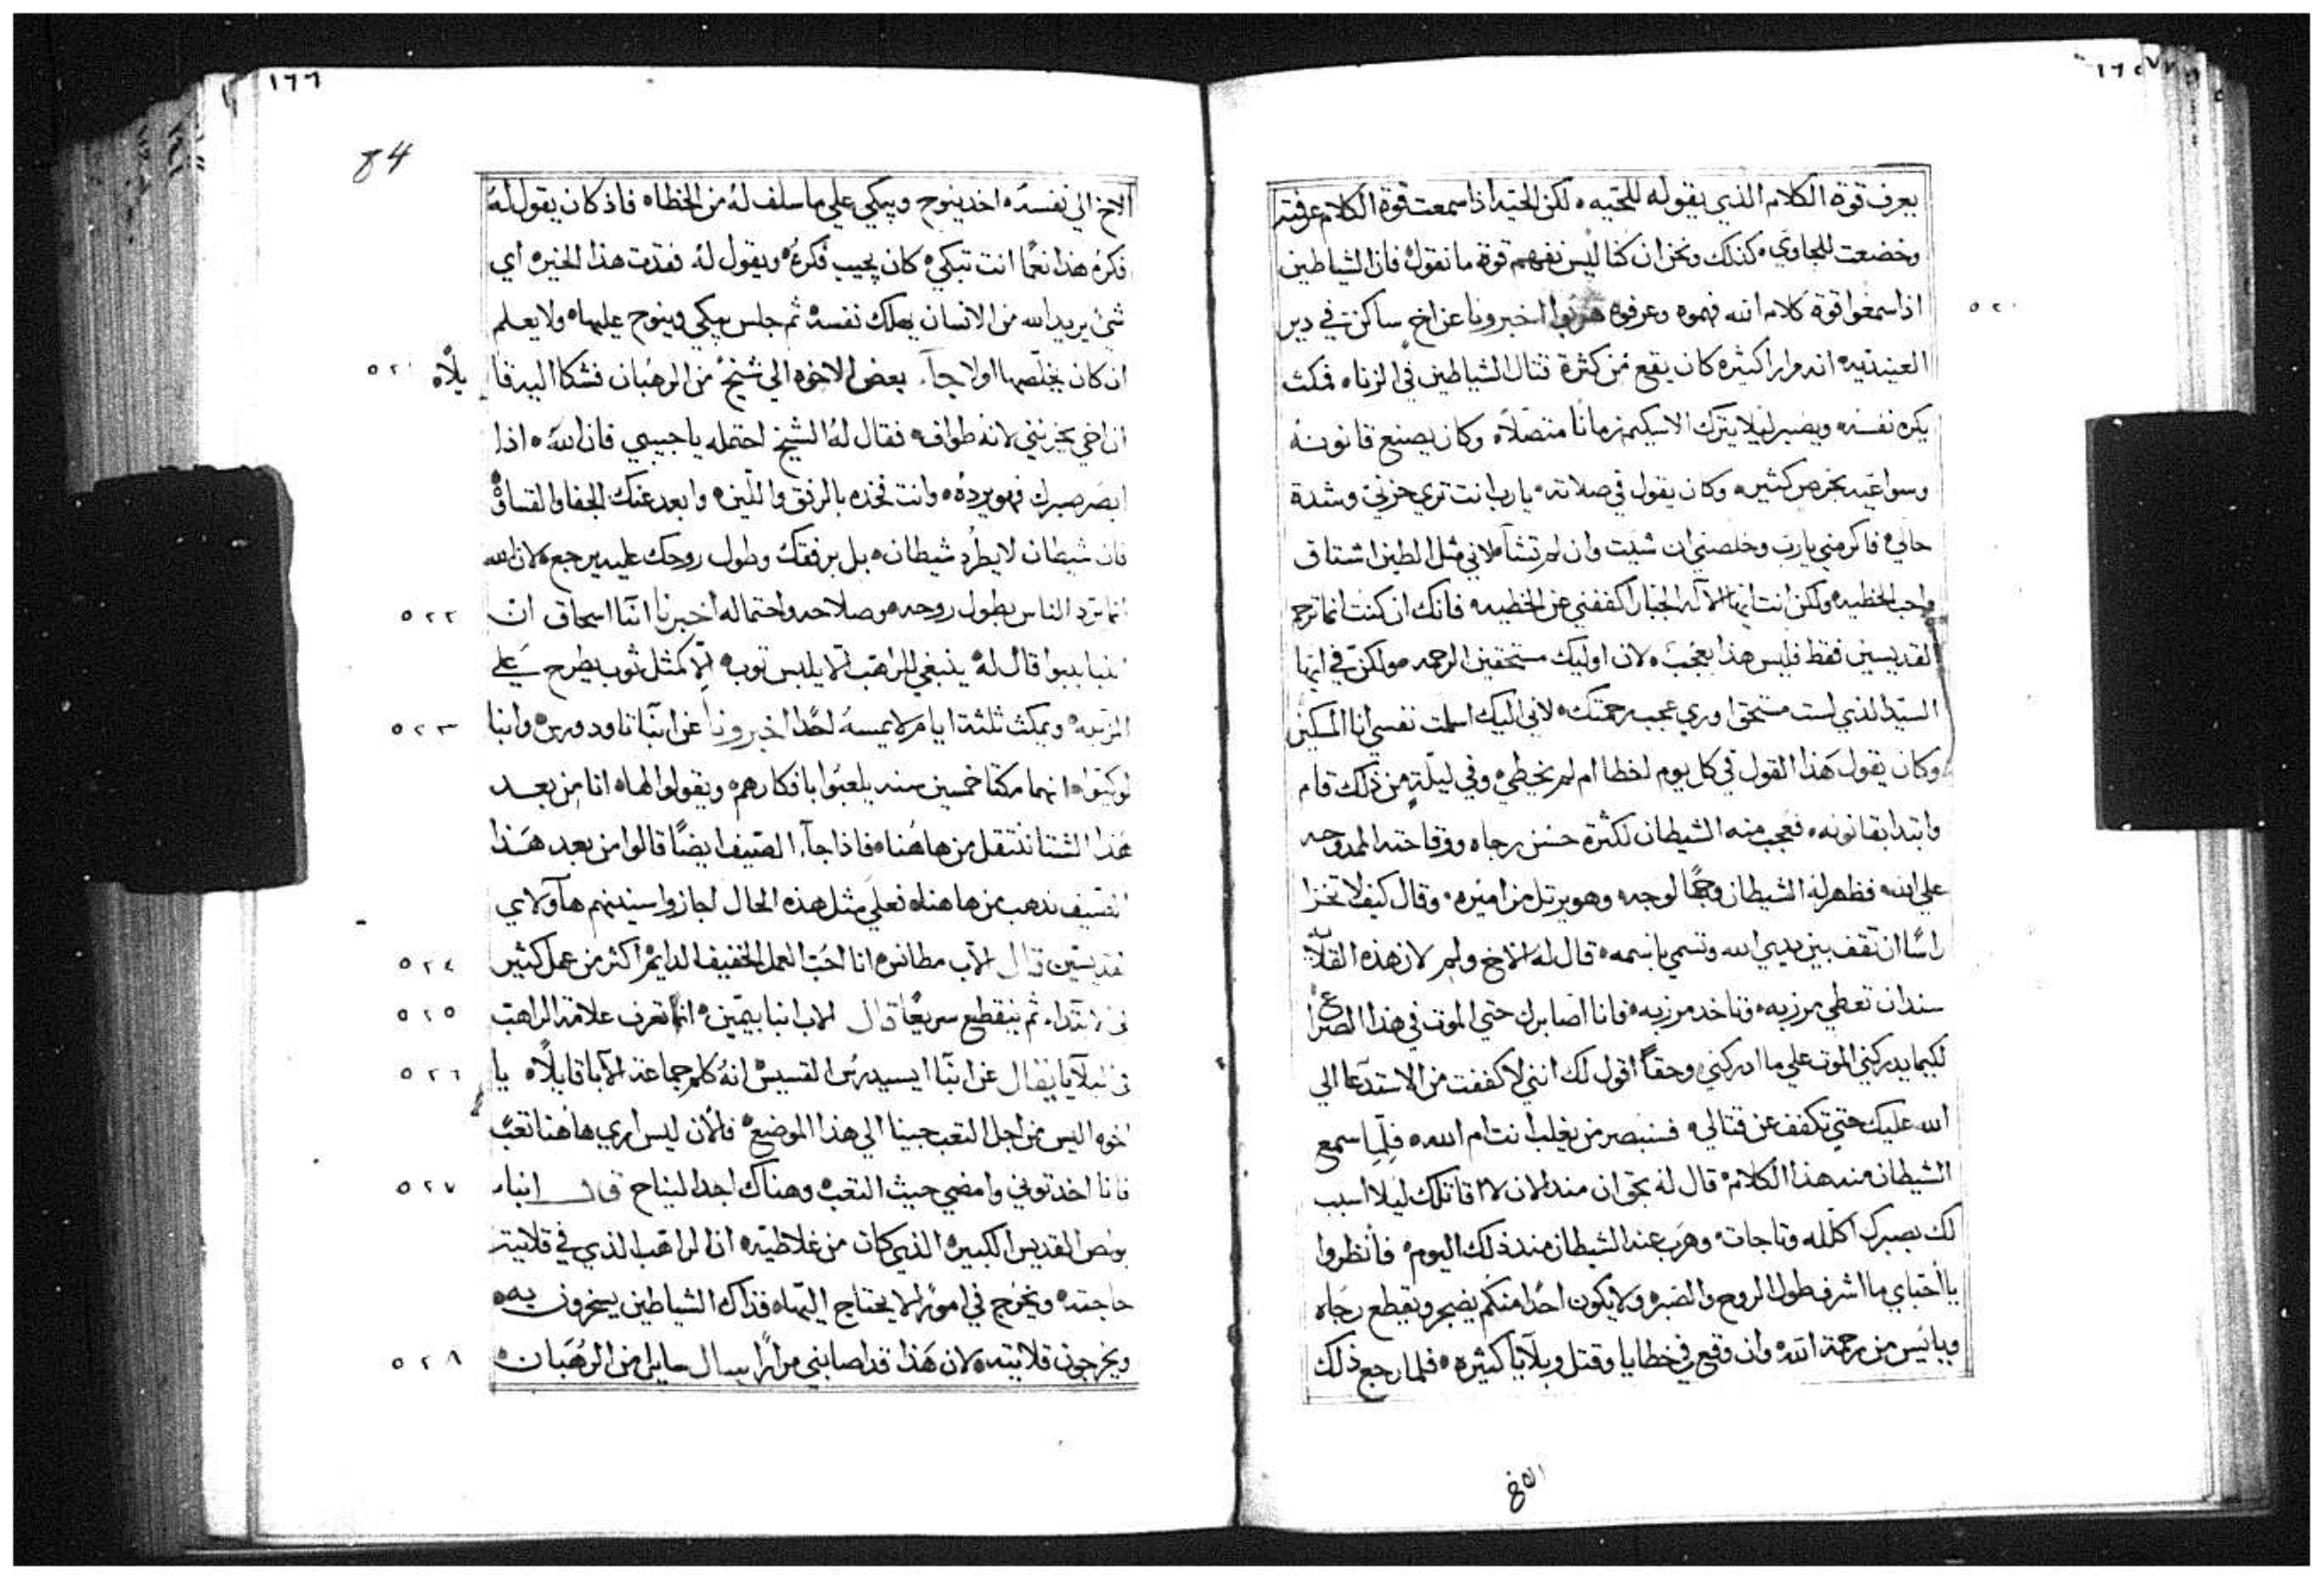 ١٦٥
يعرف قوة الكلام الذي يقوله للحيه ٠ لكن الحيه اذا سمعت قوة الكلام عرفته
وخضعت للحاوي ٠ كذلك ونحن ان كنا ليس نفهم قوة ما نقول ٠ فان الشياطين
٥٢٠
اذا سمعوا قوة كلام الله فهموه وعرفوه هربوا اخبرونا عن اخ ساكن في دير
انه مرارا كثيره كان يقع من كثرة قتال الشياطين في الزناه فمكث
يكره نفسه ويصبر ليلا يترك الاسكيم زمانا متصلا ٠ وكان يصنع قانونه
وسواعيه بحرص كثير ٠ وكان يقول في صلاته ٠ يا رب انت تري حزني وشدة
حالي ٠ فاكرمني يا رب وخلصني ان شيت وان لم تشا ٠ لاني مثل الطين اشتاق
واحب الخطيه ولكن انت ايها الاله الجبار اكففني عن الخطيه ٠ فانك ان كنت انما ترحم
القديسين فقط فليس هذا بعجب ٠ لان اوليك مستحقين الرحمه ٠ ولكن في ايها
السيد الذي لست مستحق اوري عجب رحمتك ٠ لاني اليك اسلمت نفسي انا المسكين
وكان يقول هذا القول في كل يوم اخطا ام لم يخطي ٠ وفي ليلة من ذلك قام
وابتدا بقانونه ٠ فعجب منه الشيطان لكثرة حسن رجاه ووقاحته الممدوحه
علي الله ٠ فظهر له الشيطان وجها لوجه وهو يرتل مزاميره ٠ وقال كيف لا تخزا
راسا ان تقف بين يدي الله وتسمي باسمه ٠ قال له الاخ ولم لان هذه القلايه
سندان تعطي مرزبه ٠ وتاخد مرزبه ٠ فانا اصابرك حتي الموت في هذا الصراع
لكيما يدركني الموت علي ما ادركني ٠ وحقا اقول لك انني لا كففت من الاستدعا الي
الله عليك حتي تكفف عن قتالي ٠ فسنبصر من يغلب انت ام الله ٠ فلما سمع
الشيطان منه هذا الكلام ٠ قال له بحق ان مند الان لا اقاتلك ليلا اسبب
لك بصبرك اكلله وتاجات ٠ وهرب عنه الشيطان مند ذلك اليوم ٠ فانظروا
يا احباي ما اشرف طول الروح والصبر ٠ ولا يكون احدا منكم يضجر ويقطع رجاه
ويايس من رحمة الله ٠ وان وقع في خطايا وقتل وبلايا كثيره ٠ فلما رجع ذلك
١٦٦
84
الاخ الي نفسه ٠ اخد ينوح ويبكي علي ما سلف له من الخطاه ٠ فاذ كان يقول له
فكره هذا نعما انت تبكي ٠ كان يجيب فكره ٠ ويقول له فقدت هذا الخير ٠ اي
شي يريد الله من الانسان يهلك نفسه ٠ ثم جلس يبكي وينوح عليها ٠ ولا يعلم
ان كان يخلصها او لا جاء بعض الاخوه الي شيخ من الرهبان فشكا اليه قايلا ٠
٥٢١
ان اخي يحزنني لانه طواف ٠ فقال له الشيخ احتمله يا حبيبي فان الله ٠ اذا
ابصر صبرك فهو يرده ٠ وانت فخده بالرفق واللين ٠ وابعد عنك الجفا والقساوة
فان شيطان لا يطرد شيطان ٠ بل برفقك وطول روحك عليه يرجع ٠ لان الله
انما يرد الناس بطول روحه وصلاحه واحتماله اخبرنا انبا اسحاق ان
٥٢٢
انبا ببوا قال له ٠ ينبغي للراهب الا يلبس توبه ٠ الا كمثل ثوب يطرح علي
المزبله ٠ ويمكث ثلثة ايام لا يمسه احد اخبرونا عن انبا تاودورس ٠ وانبا
٥٢٣
لوكيوا ٠ انهما مكثا خمسين سنه يلعبوا بافكارهم ويقولوا لها ٠ انا من بعد
هذا الشتا ننتقل من هاهنا ٠ فاذا جاء الصيف ايضا قالوا من بعد هذا
الصيف ندهب من هاهنا ٠ فعلي مثل هذه الحال اجازوا سنينهم هاولاي
القديسين قال الاب مطانس ٠ انا احب العمل الخفيف الدايم اكثر من عمل كثير
٥٢٤
في الابتداء ثم ينقطع سريعا قال الاب انبا بيمين ٠ انما تعرف علامة الراهب
٥٢٥
في البلايا يقال عن انبا ايسيدرس القسيس ٠ انه كلم جماعة الابا قايلا ٠ يا
٥٢٦
اخوه اليس من اجل التعب جينا الي هذا الموضع ٠ فالان ليس اري هاهنا تعب
فانا اخد توني وامضي حيث التعب ٠ وهناك اجد النياح قال انبا
٥٢٧
بولص القديس الكبير ٠ الذي كان من غلاطيه ٠ ان الراهب الذي في قلايته
حاجته ٠ ويخرج في امور لا يحتاج اليها ٠ فذاك الشياطين يسخرون به ٠
ويخرجون قلايته ٠ لان هذا قد اصابني مرارا سال سايل من الرهبان ٠
٥٢٨